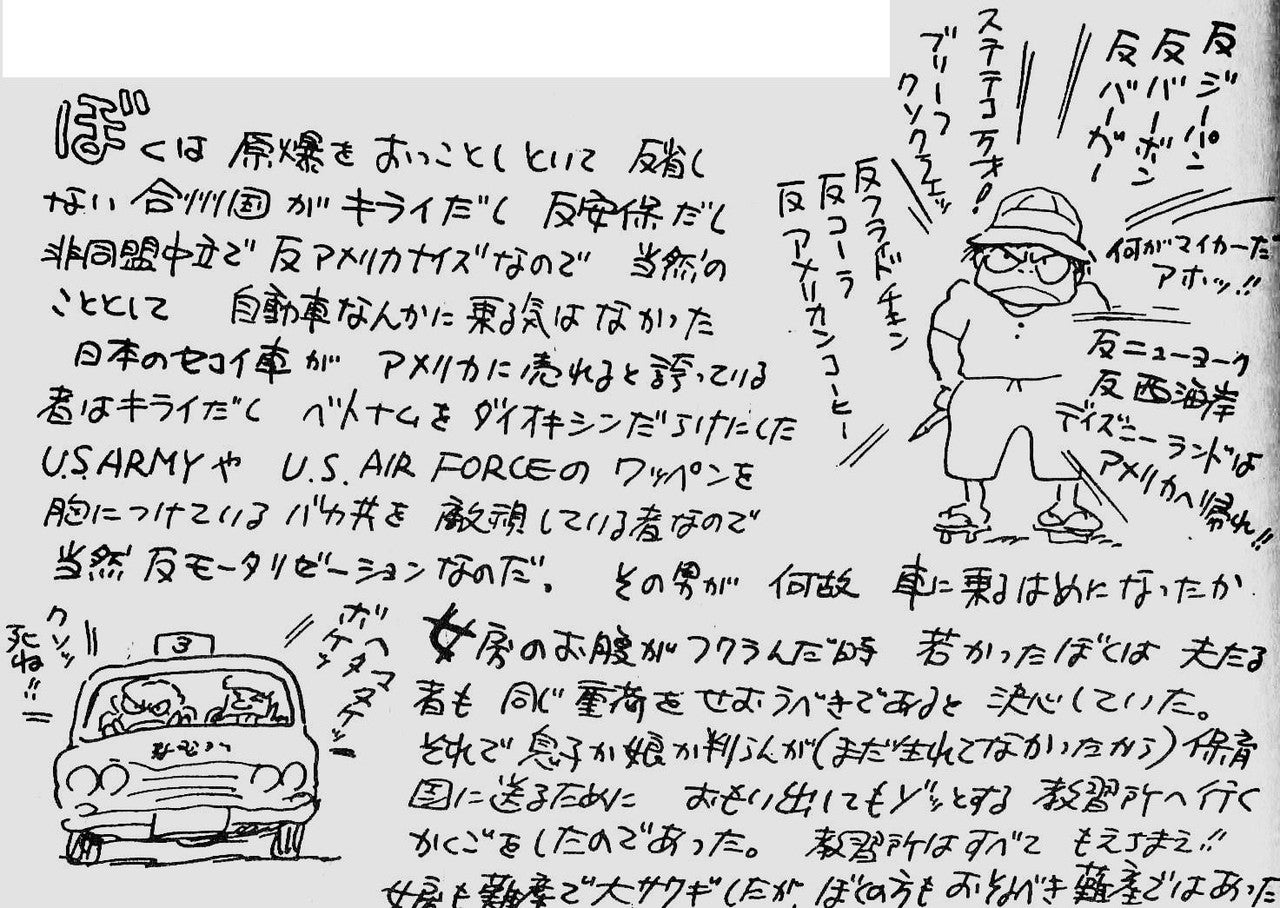 反ジーパン
反バーボン
反バーガー
ステテコ万才!
ブリーフ
クソクラエッ
反フライドチキン
反コーラ
反アメリカンコーヒー
何がマイカーだ
アホッ!!
反ニューヨーク
反西海岸
ディズニーランドは
アメリカへ帰れ!!
ぼくは 原爆を おっことしといて 反省し
ない 合州国 が キライだし 反安保だし
非同盟中立で 反アメリカナイズなので 当然の
こととして 自動車なんかに 乗る気は なかった
日本のセコイ車が アメリカに売れると誇っている
者はキライだし ベトナムを ダイオキシンだらけにした
U.S ARMYや U.S. AIR FORCEの ワッペンを
胸につけている バカ共を 敵視している者なので
当然 反モータリゼーションなのだ。 その男が 何故 車に乗るはめになったか
女房のお腹がフクランだ時 若かったぼくは 夫たる
者も 同じ 重荷を せおうべきであると 決心していた。
それで 息子か娘か判らんが(まだ生れてなかったから)保育
園に送るために おもい出してもゾッとする 教習所へ行く
かくごをしたのであった。 教習所はすべて もえちまえ!!
女房も難産で大サワギしたが、ぼくの方も おそるべき 難産ではあった
クソッ
死ね!!
ヘタマヌケッ
ボケッ
3